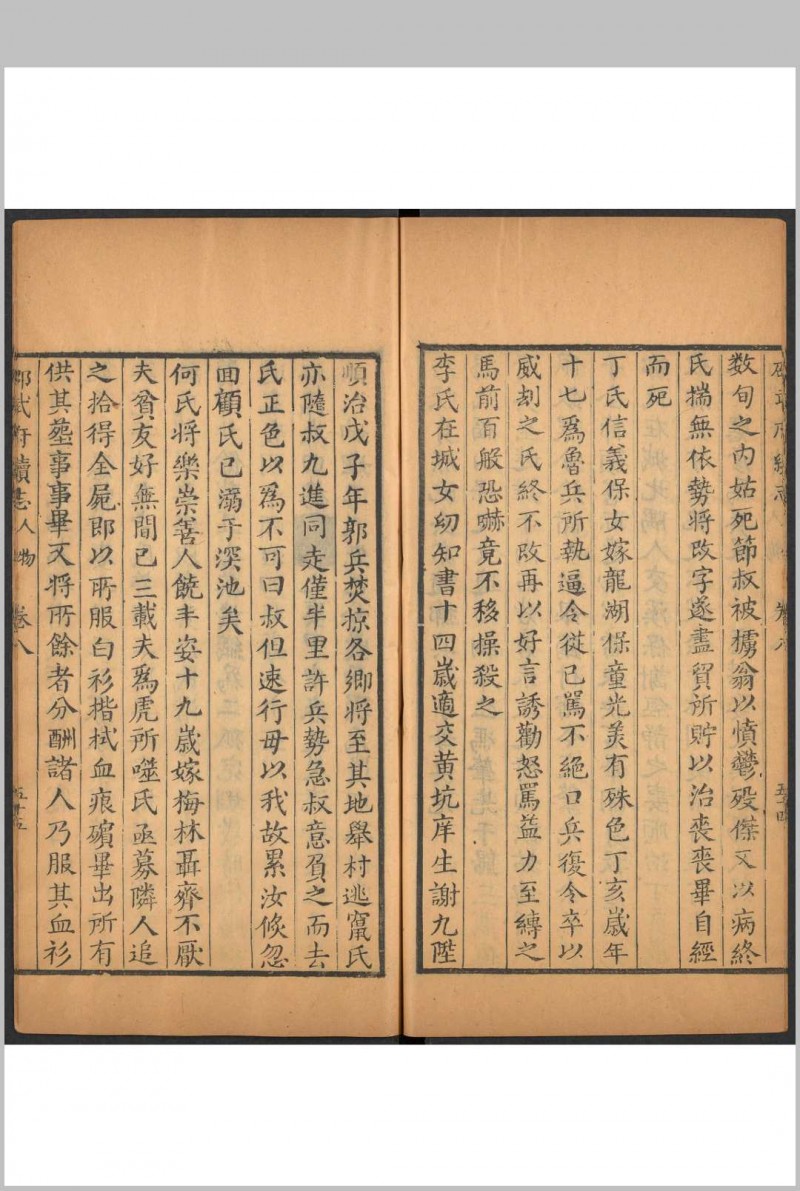 數旬之內姑死節叔被擄翁以憤鬱歿傑又以病終
氏揣無依勢將改字遂盡貿所貯以治喪喪畢自經
而死
丁氏信義保女嫁龍湖保童光美有殊色丁亥歲年
十七爲魯兵所執逼令從已罵不絕口兵復令卒以
威刦之氏終不改再以好言誘勸怒罵益力至縛之
馬前百般恐嚇竟不移操殺之
李氏在城女幼知書十四歲適交黄坑庠生謝九陛
順治戊子年郭兵焚掠各鄉將至其地舉村逃竄氏
亦隨叔九進同走僅半里許兵勢急叔意負之而去
氏正色以爲不可曰叔但速行毋以我故累汝倐忽
回顧氏已溺于深池矣
何氏將樂崇善人饒丰姿十九歲嫁梅林聶齊不厭
夫貧友好無間已三載夫爲虎所噬氏亟募隣人追
之拾得全屍即以所服白衫揩拭血痕殯畢出所有
供其塟事事畢又將所餘者分酬諸人乃服其血衫
邵武府續志人物 卷八 五十五